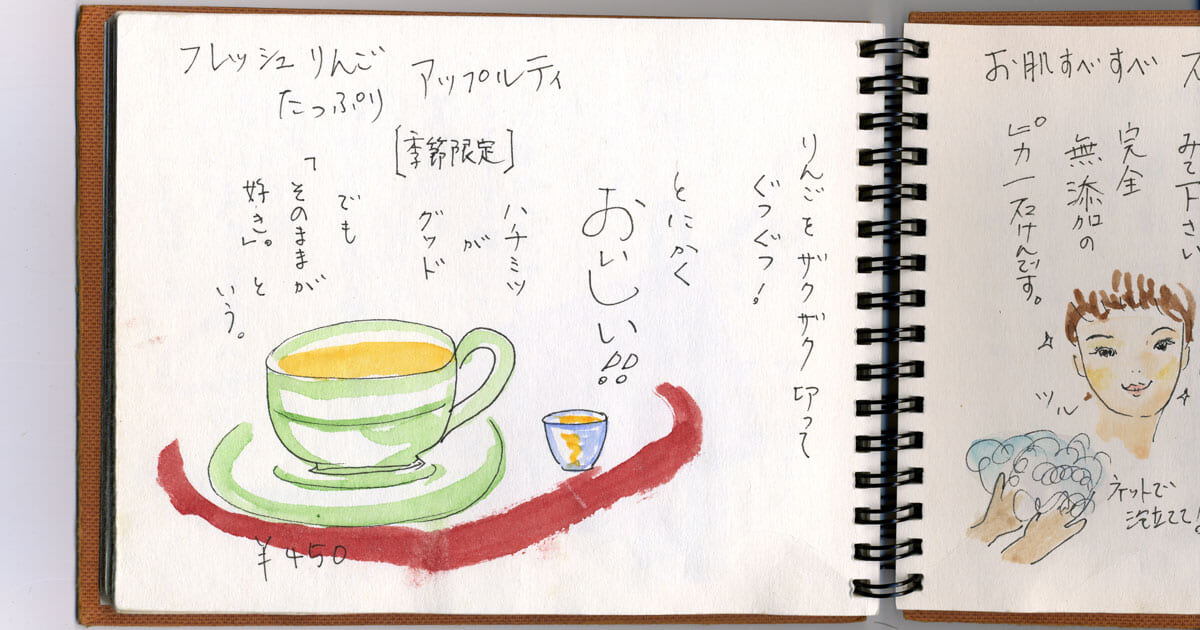 フレッシュりんご
たっぷり
アップルティ
[季節限定]
りんごをザクザク切って
ぐつぐつ!
とにかく
おいしい!!
ハチミツ
が
グッド
でも
「そのままが
好き」。と
いう。
¥450
お肌すべすべ
みて下さい
完全
無添加の
ピカ一石けんです。
ツル
ネットで
泡立てて!